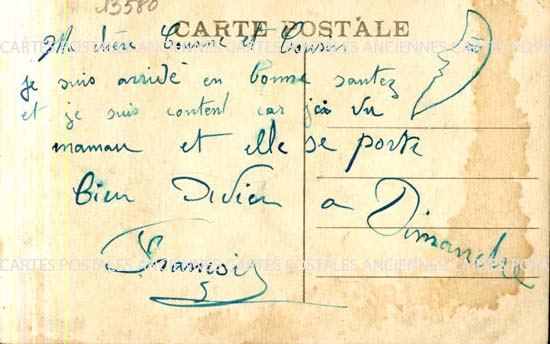 13580
CARTE POSTALE
Ma chère Cousine et Cousin
je suis arrivé en bonne santez
et je suis content car jai vu
maman et elle se porte
bien Divien a Dimanche
Francois
CARTES POSTALES ANCIENNES CARTES POSTALES ANCIENNES CARTES POSTALES ANCIENNES
CARTES POSTALES ANCIENNES CARTES POSTALES ANCIENNES CARTES POSTALES ANCIENNES